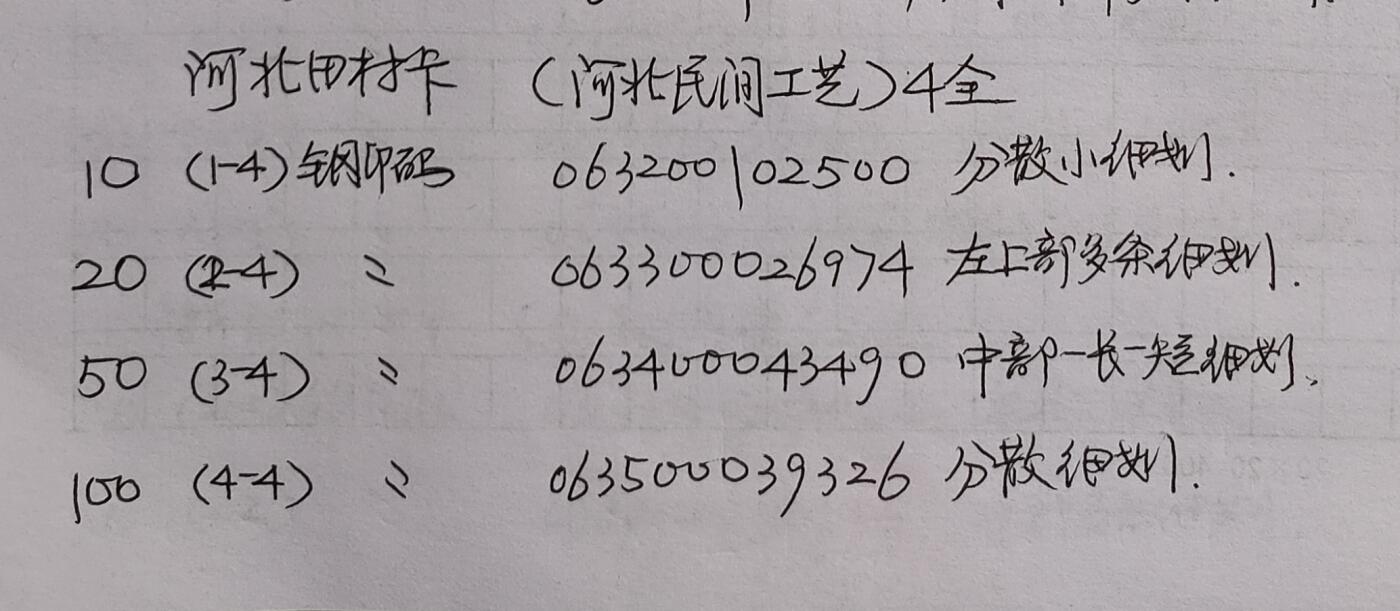 河北田村卡 (河北民间工艺)4全
10 (1-4)钢印码 063200102500 分散小细划.
20 (2-4) 〃 063300026974 左上部多条细划.
50 (3-4) 〃 063400043490 中部一长一短细划、
100 (4-4) 〃 063500039326 分散细划.